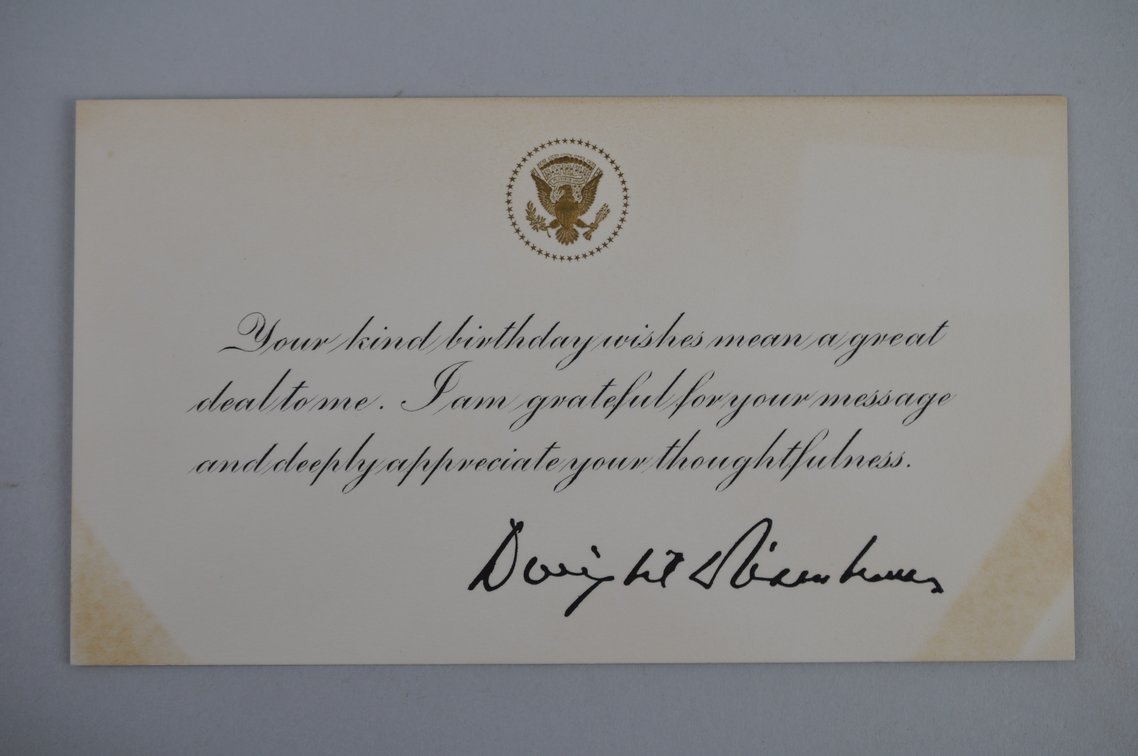 Your kind birthday wishes mean a great
deal to me. I am grateful for your message
and deeply appreciate your thoughtfulness.
Dwight D Eisenhower